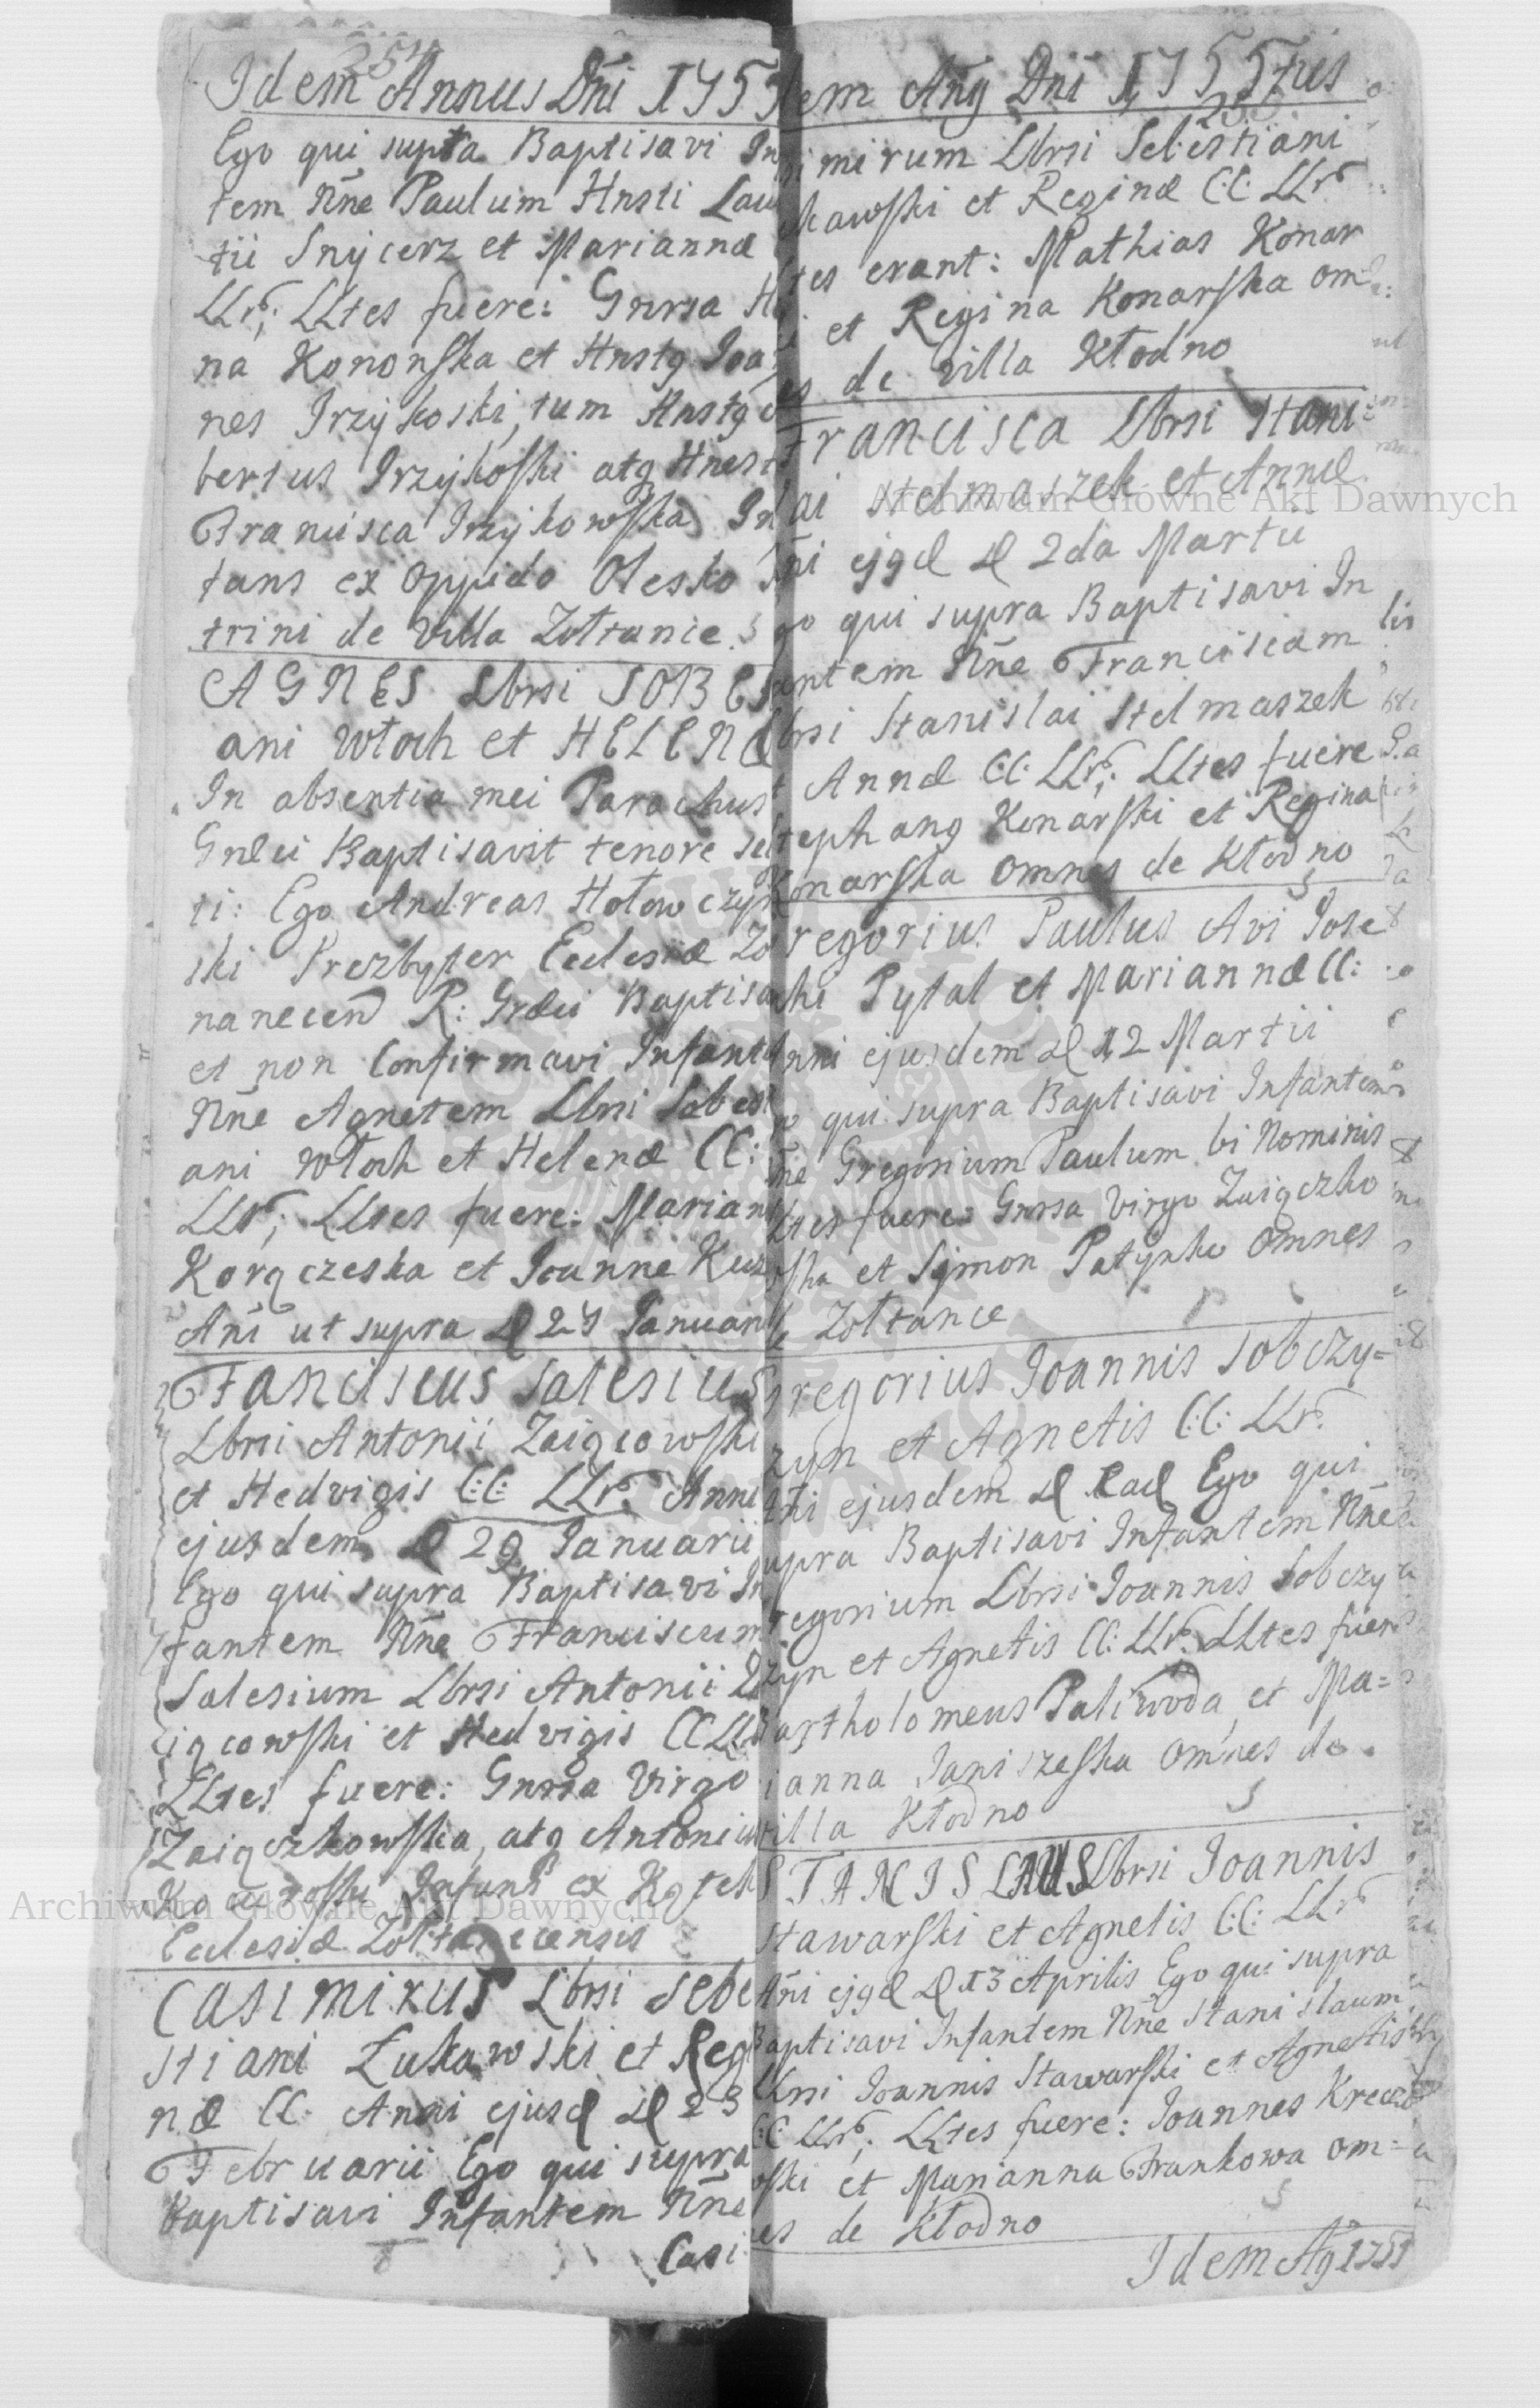 254
Idem Annus Dñi 1755
Ego qui supra Baptisavi In
tem Nñe Paulum Hnsti Lau
tii Snycerz et Mariannæ
LLr; LLtes fuere: Gnrsa H
na Kononska et Hnstg Joa
nes Irzykoski, tum Hnstg
bertus Irzykoski atq Hnest
Francisca Irzykowska In
tans ex Oppido Olesko
trini de Villa Zołtance.
AGNES Lbrsi SOBES
ani Włoch et HELENÆ
In absentia mei Parochus
Græci Baptisavit tenore se
ti: Ego Andreas Hołowczyn
ski Prezbyter Ecclesiæ Zo
nanecen R: Græci Baptisa
et non Confirmavi Infant
Nñe Agnetem Lbrsi Sobes
ani Włoch et Helenæ CC:
LLr; LLtes fuere: Marian
Korqczeska et Joanne Kuz
Añi ut supra D 27 Januari
Fanciscus Salesius
Lbrsi Antonii Zaiqcowski
et Hedvigis C:C: LLr. Anni
ejusdem D 29 Januarii
Ego qui supra Baptisavi In
fantem Nñe Franciscum
Salesium Lbrsi Antonii Z
iqcowski et Hedvigis CC LLr
LLtes fuere: Gnrsa Virgo
Zaiqczkowska, atq Antonius
Infans ex
Ecclesiæ Zołtanecensis
CASIMIRUS Lbrsi Sebe
stiani Łukawski et Regi
næ CC. Anni ejusd D 23
Februarii Ego qui supra
Baptisavi Infantem Nñe
Casi
dem Ang Dñi 1755tus
255
simirum Lbrsi Sebestiani
kawski et Reginæ C:C: LLr
tes erant: Mathias Konar
i et Regina Konarska om
es de villa Kłodno
Francisca Lbrsi Stani
lai Stelmaszek et Annæ
ñi ejgd D 2da Martii
go qui supra Baptisavi In
antem Nñe Franciscam
brsi Stanislai Stelmaszek
t Annæ C:C: LLr; LLtes fuere
tephang Konarski et Regina
Konarska omnes de Kłodno
regorius Paulus Avi Jose
chi Pytal et Mariannæ CC:
nni ejusdem D 12 Martii
o qui supra Baptisavi Infantem
ñe Gregorium Paulum bi Nominis
Ltes fuere: Gnrsa Virgo Zaiqczko
ska et Symon Patynko Omnes
e Zołtance
regorius Joannis Sobczy=
zyn et Agnetis C:C: LLr.
ñi ejusdem D Ead Ego qui
upra Baptisavi Infantem Nñe
regorium Lbrsi Joannis Sobczy
zyn et Agnetis CC: LLr. LLtes fuere
artholomeus Paliwoda et Ma=
ianna Janiszeska Omnes de
illa Kłodno
STANISLAUS Lbrsi Joannis
Stawarski et Agnetis C:C: LLr
Añi ejgd D 13 Aprilis Ego qui supra
Baptisavi Infantem Nñe Stanislaum
Lbrsi Joannis Stawarski et Agnetis
C:C LLr; LLtes fuere: Joannes Kreczo
wski et Marianna Frankowa om=
nes de Kłodno
Idem Ag 1755
Archiwum Główne Akt Dawnych
Archiwum Główne Akt Dawnych